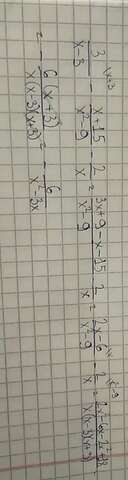 3/(x-3) - (x+15)/(x²-9) - 2/x = (3x+9-x-15)/(x²-9) - 2/x = (2x-6)/(x²-9) - 2/x = (2x²-6x-2x²+18)/(x(x-3)(x+3)) =
= - 6(x+3)/(x(x-3)(x+3)) = - 6/(x²-3x)